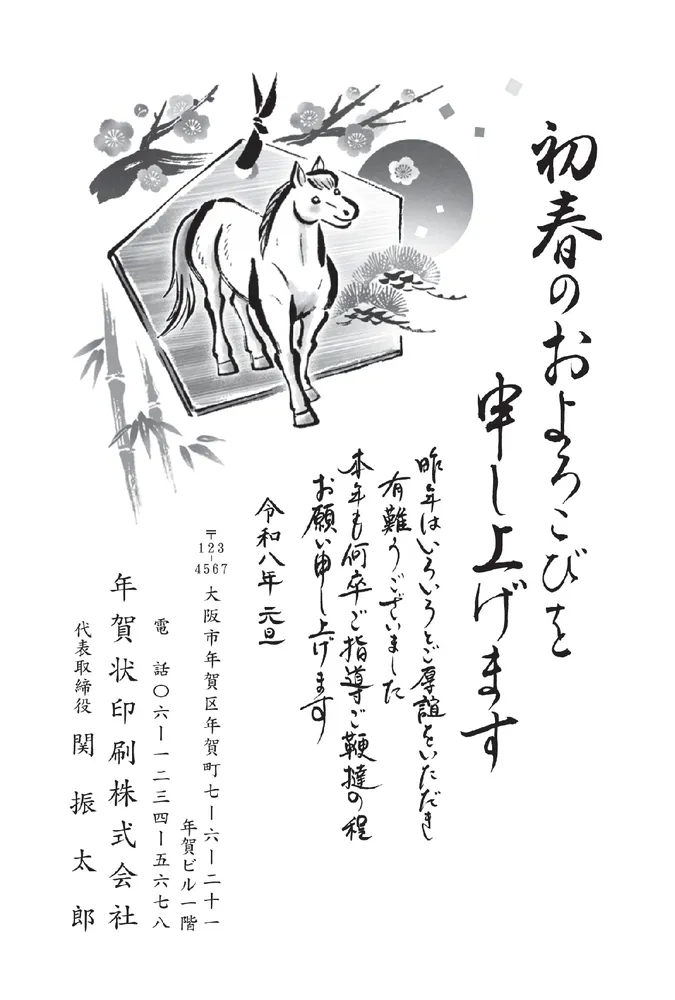 初春のおよろこびを
申し上げます
昨年はいろいろとご厚誼をいただき
有難うございました
本年も何卒ご指導ご鞭撻の程
お願い申し上げます
令和八年 元旦
〒123-4567
大阪市年賀区年賀町七ー六ー二十一
年賀ビル一階
電 話〇六ー一二三四ー五六七八
年賀状印刷株式会社
代表取締役 関 振 太 郎